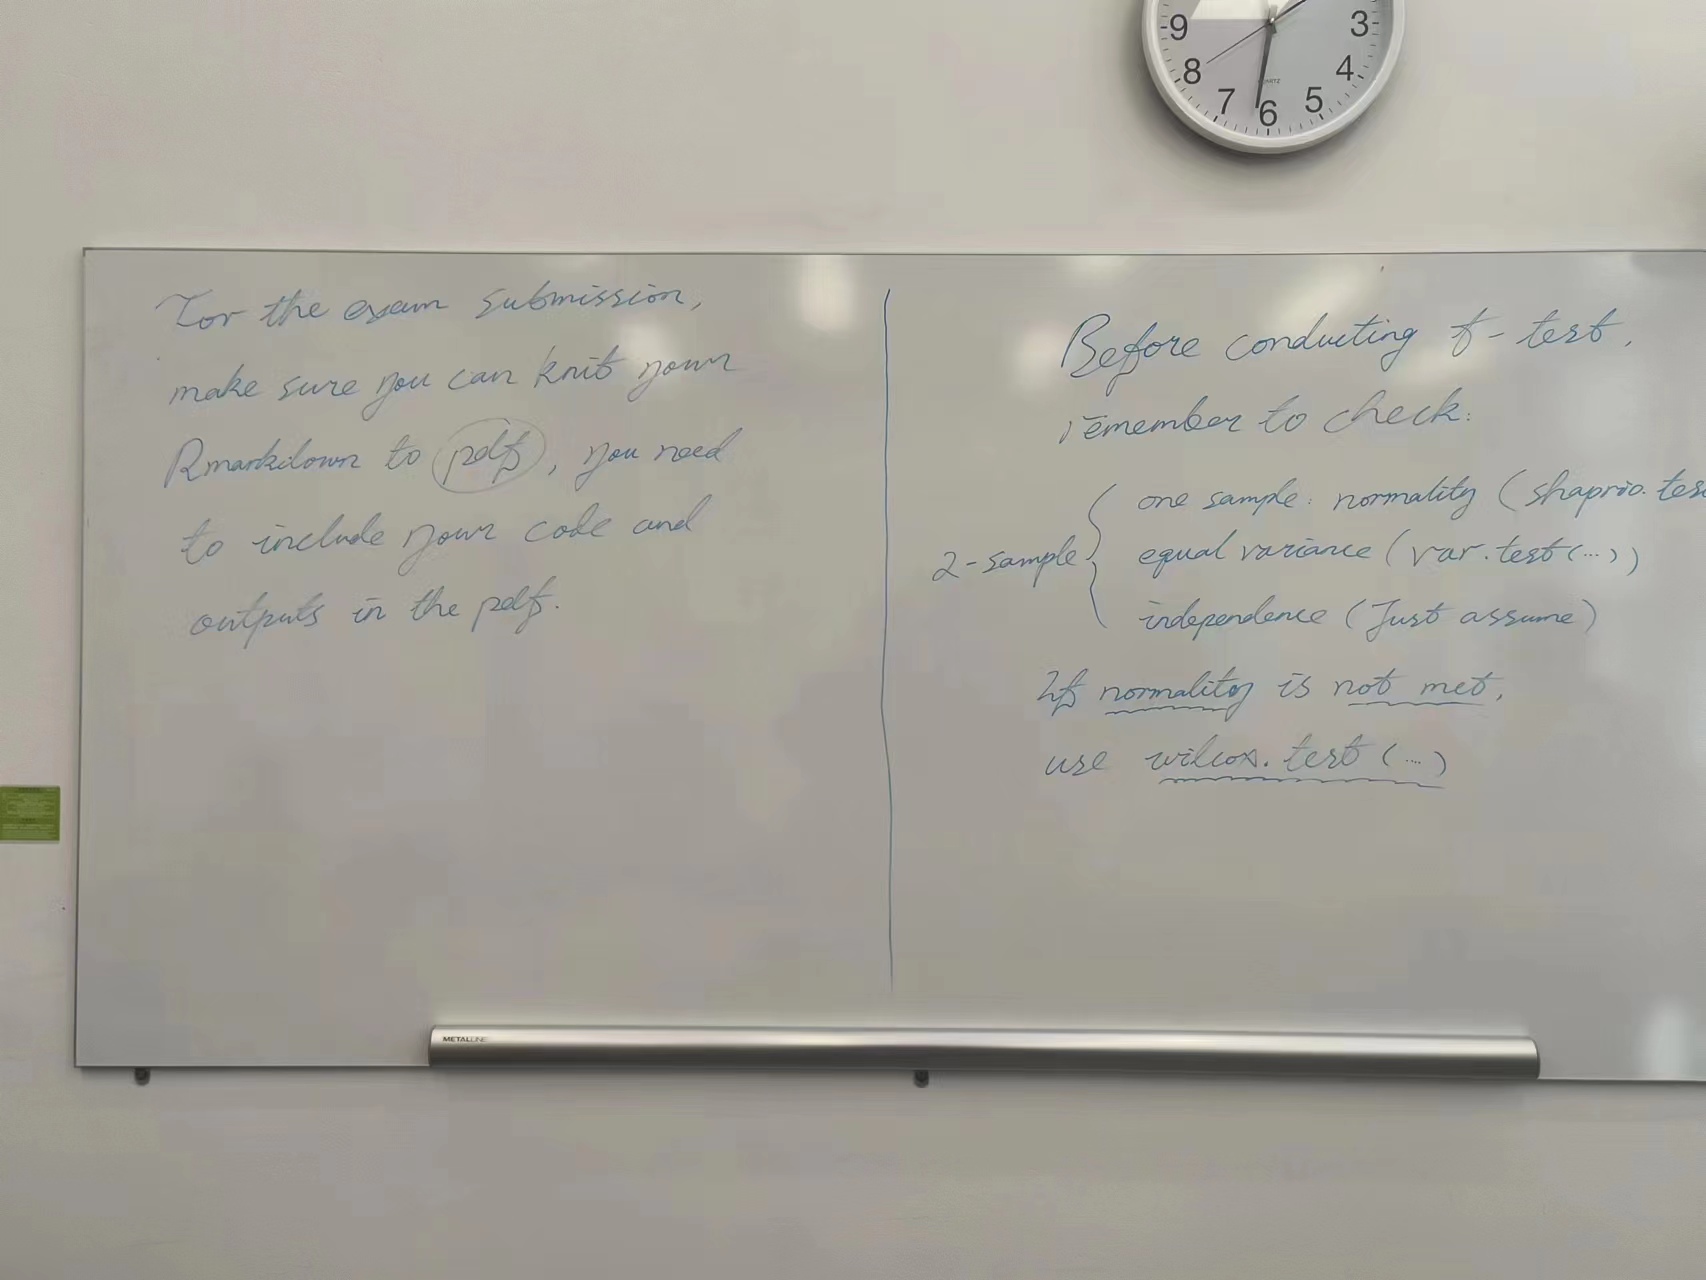 9
3
8
4
7
6
5
QUARTZ
For the exam submission,
make sure you can knit your
Rmarkdown to pdf, you need
to include your code and
outputs in the pdf.
Before conducting t-test,
remember to check:
2-sample
one sample: normality (shaprio.tes
equal variance (var.test(...))
independence (Just assume)
If normality is not met,
use wilcox.test(....)
METALLINE